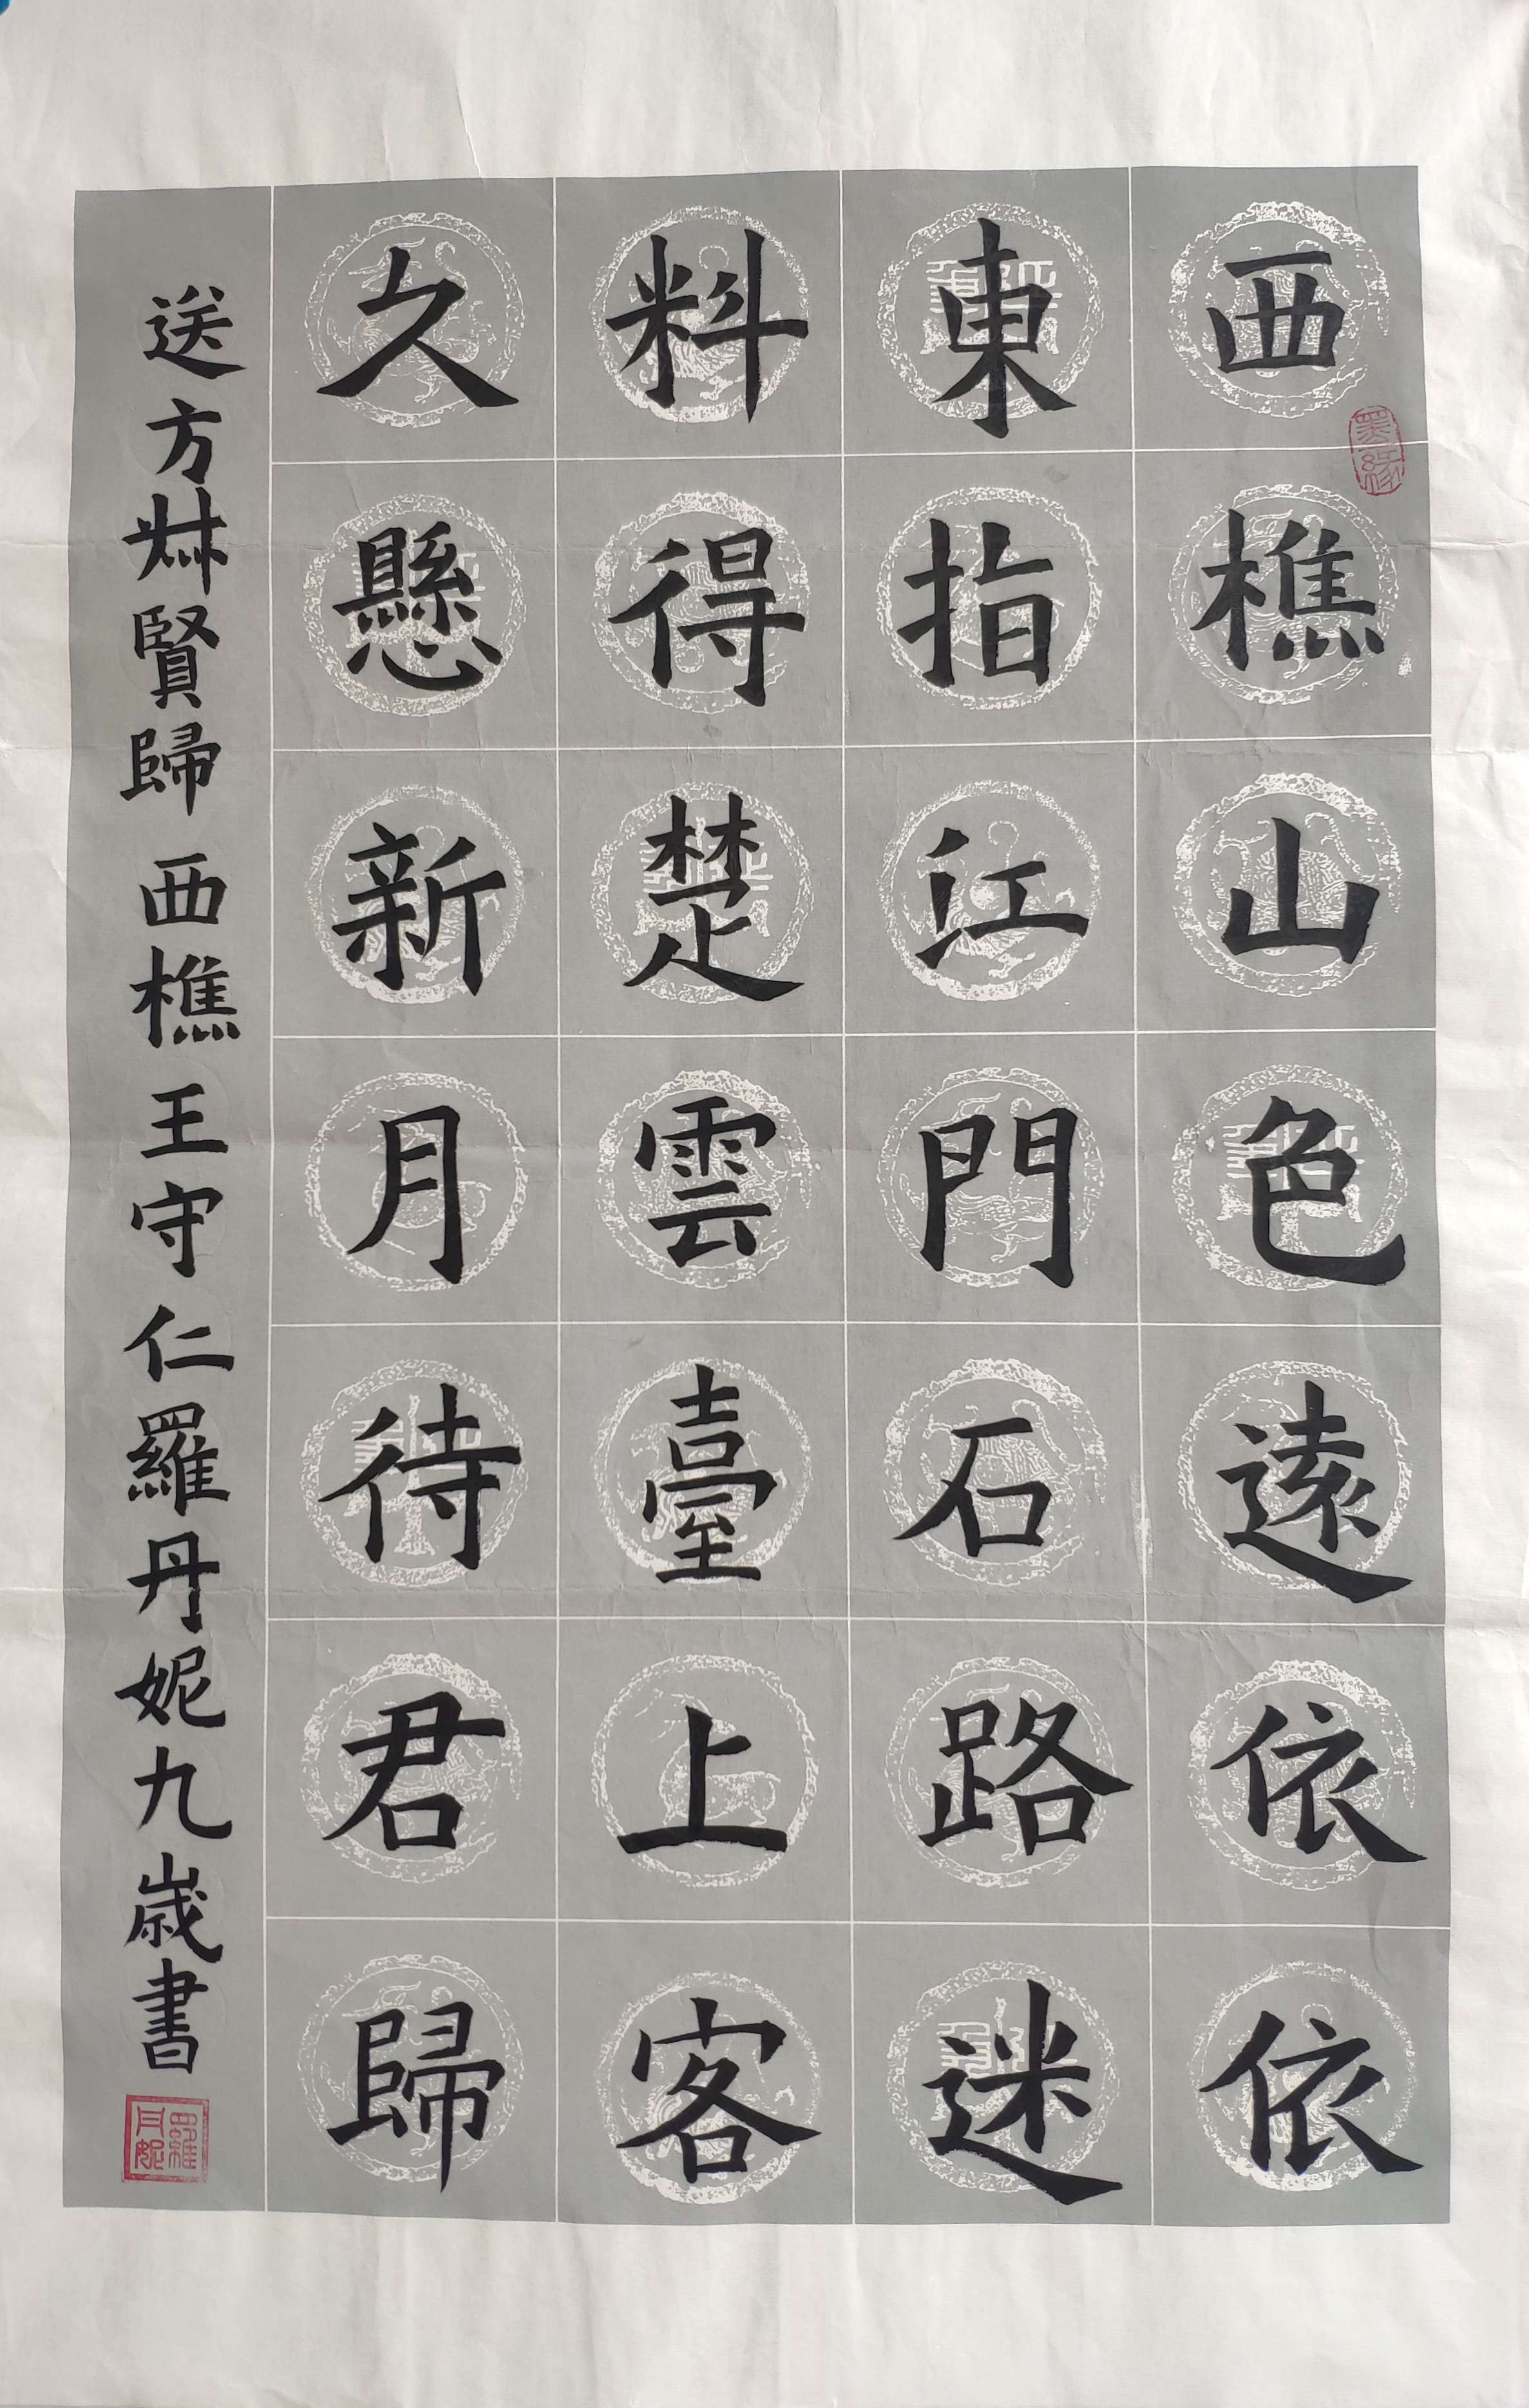 西樵山色遠依依
東指江門石路迷
料得楚雲臺上客
久懸新月待君歸
送方叔賢歸西樵王守仁羅丹妮九歲書
墨緣
羅丹妮